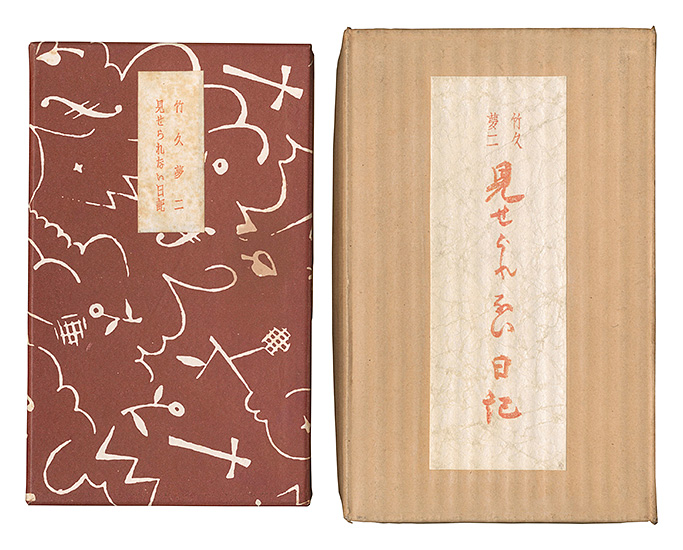 竹久夢二
見せられない日記
竹久
夢二
見せられない日記